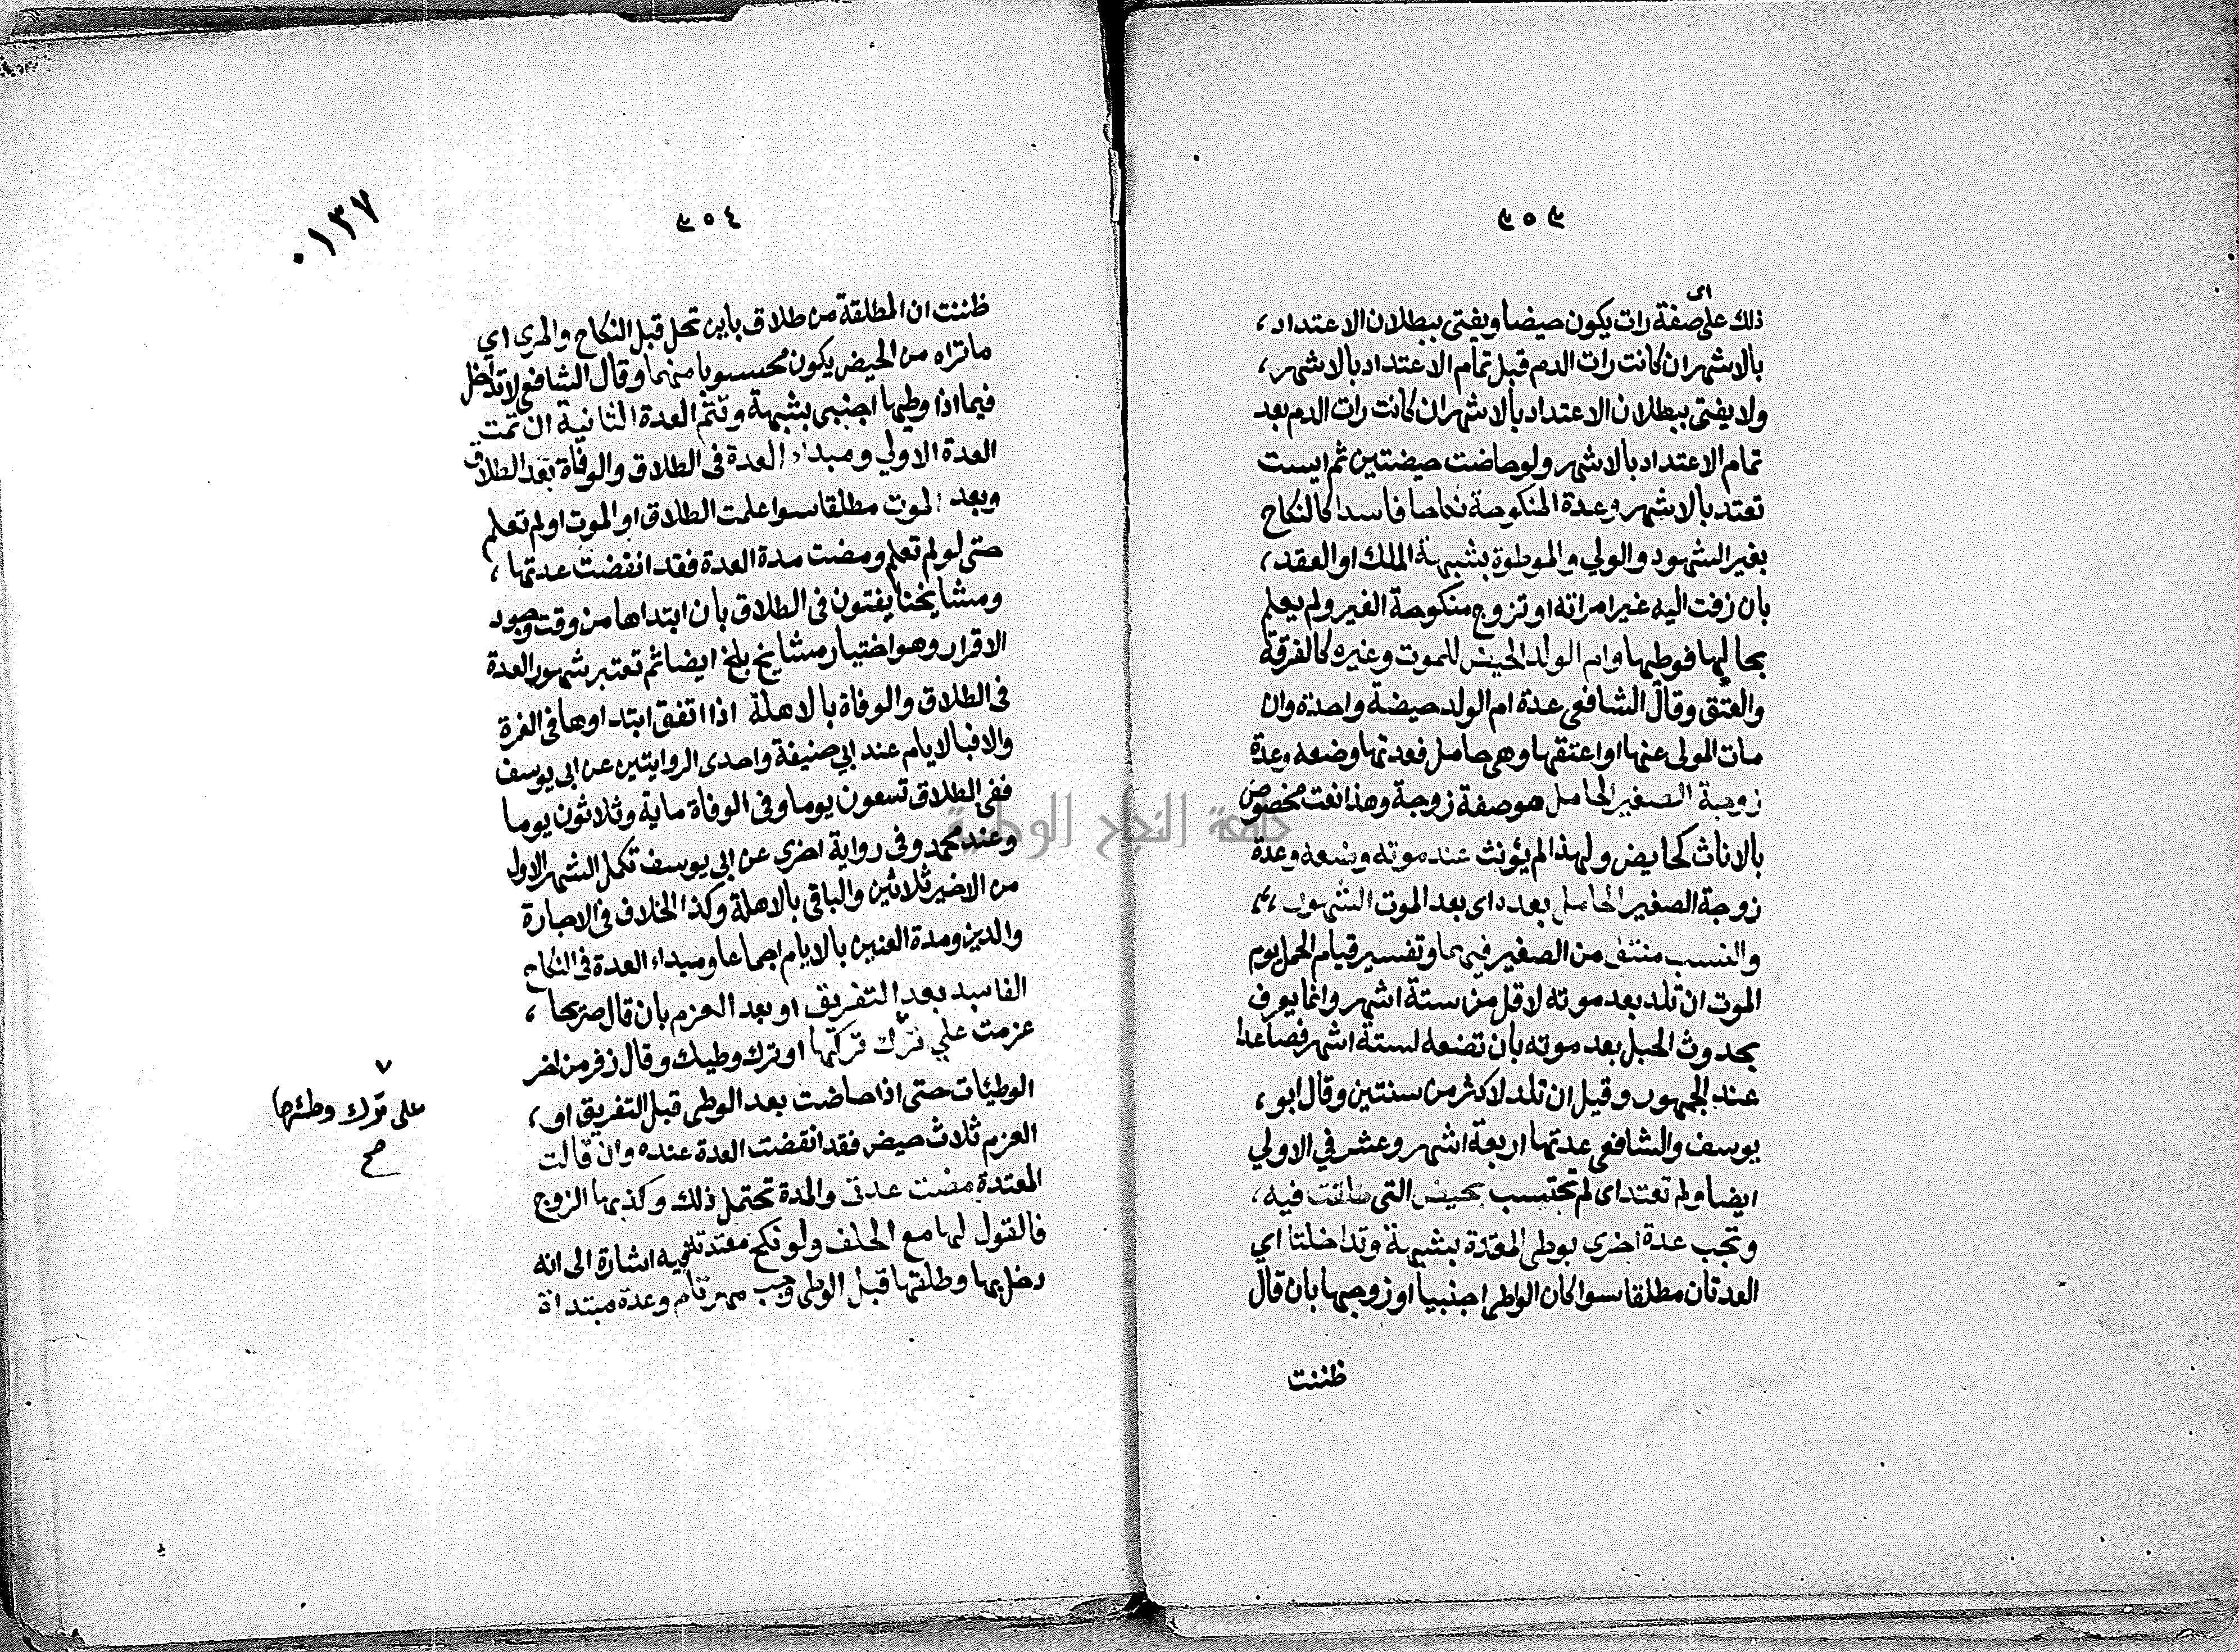 ٣٥٣
ذلك على اى صفة رات يكون حيضا ويفتى ببطلان الاعتداد،
بالاشهر ان كانت رات الدم قبل تمام الاعتداد بالاشهر،
ولا يفتى ببطلان الاعتداد بالاشهر ان كانت رات الدم بعد
تمام الاعتداد بالاشهر ولو حاضت حيضتين ثم ايست
تعتد بالاشهر وعدة المنكوحة نكاحا فاسدا كالنكاح
بغير الشهود والولي والموطوة بشبهة الملك او العقد،
بان زفت اليه غير امراته او تزوج منكوحة الغير ولم يعلم
بحالها فوطيها وام الولد الحيض للموت وغيره كالفرقة
والعتق وقال الشافعى عدة ام الولد حيضة واحدة وان
مات المولى عنها او اعتقها وهى حامل فعدتها وضعه وعدة
زوجة الصغير الحامل هو صفة زوجة وهذا نعت مخصوص
بالاناث كحايض ولهذا لم يؤنث عند موته وضعه وعدة
زوجة الصغير الحامل بعده اى بعد الموت الشهور
والنسب منتف من الصغير فيهما وتفسير قيام الحمل يوم
الموت ان تلد بعد موته لاقل من ستة اشهر وانما يعرف
بحدوث الحبل بعد موته بان تضعه لستة اشهر فصاعدا
عند الجمهور وقيل ان تلد لاكثر من سنتين وقال ابو،
يوسف والشافعى عدتها اربعة اشهر وعشر في الاولي
ايضا ولم تعتد اى لم تحتسب بحيض التى طلقت فيه،
وتجب عدة اخرى بوطى المعتدة بشبهة وتداخلتا اي
العدتان مطلقا سوا كان الواطى اجنبيا او زوجها بان قال
ظننت
٣٥٤
٠١٣٧
ظننت ان المطلقة من طلاق باين تحل قبل النكاح والمرى اي
ما تراه من الحيض يكون محسوبا منهما وقال الشافعى لا تداخل
فيما اذا وطيها اجنبى بشبهة وتتم العدة الثانية ان تمت
العدة الاولي ومبداء العدة فى الطلاق والوفاة بعد الطلاق
وبعد الموت مطلقا سوا علمت الطلاق او الموت او لم تعلم
حتى لو لم تعلم ومضت مدة العدة فقد انقضت عدتها،
ومشايخنا يفتون فى الطلاق بان ابتداها من وقت وجود
الاقرار وهو اختيار مشايخ بلخ ايضا ثم تعتبر شهور العدة
فى الطلاق والوفاة بالاهلة اذا اتفق ابتداوها فى الغرة
والا فبالايام عند ابي حنيفة واحدى الروايتين عن ابى يوسف
ففى الطلاق تسعون يوما وفى الوفاة ماية وثلاثون يوما
وعند محمد وفى رواية اخرى عن ابى يوسف تكمل الشهر الاول
من الاخير ثلاثين والباقى بالاهلة وكذا الخلاف فى الاجارة
والدين ومدة العنين بالايام اجماعا ومبداء العدة فى النكاح
الفاسد بعد التفريق او بعد العزم بان قال صريحا،
عزمت علي ترك تركتها او ترك وطيك وقال زفر من اخر
الوطيات حتى اذا حاضت بعد الوطى قبل التفريق او،
العزم ثلاث حيض فقد انقضت العدة عنده وان قالت
المعتدة مضت عدتى والمدة تحتمل ذلك وكذبها الزوج
فالقول لها مع الحلف ولو نكح معتدته فيه اشارة الى انه
دخل بها وطلقها قبل الوطى وجب مهر تام وعدة مبتداة
على ترك وطئها
صح
جامعة النجاح الوطنية